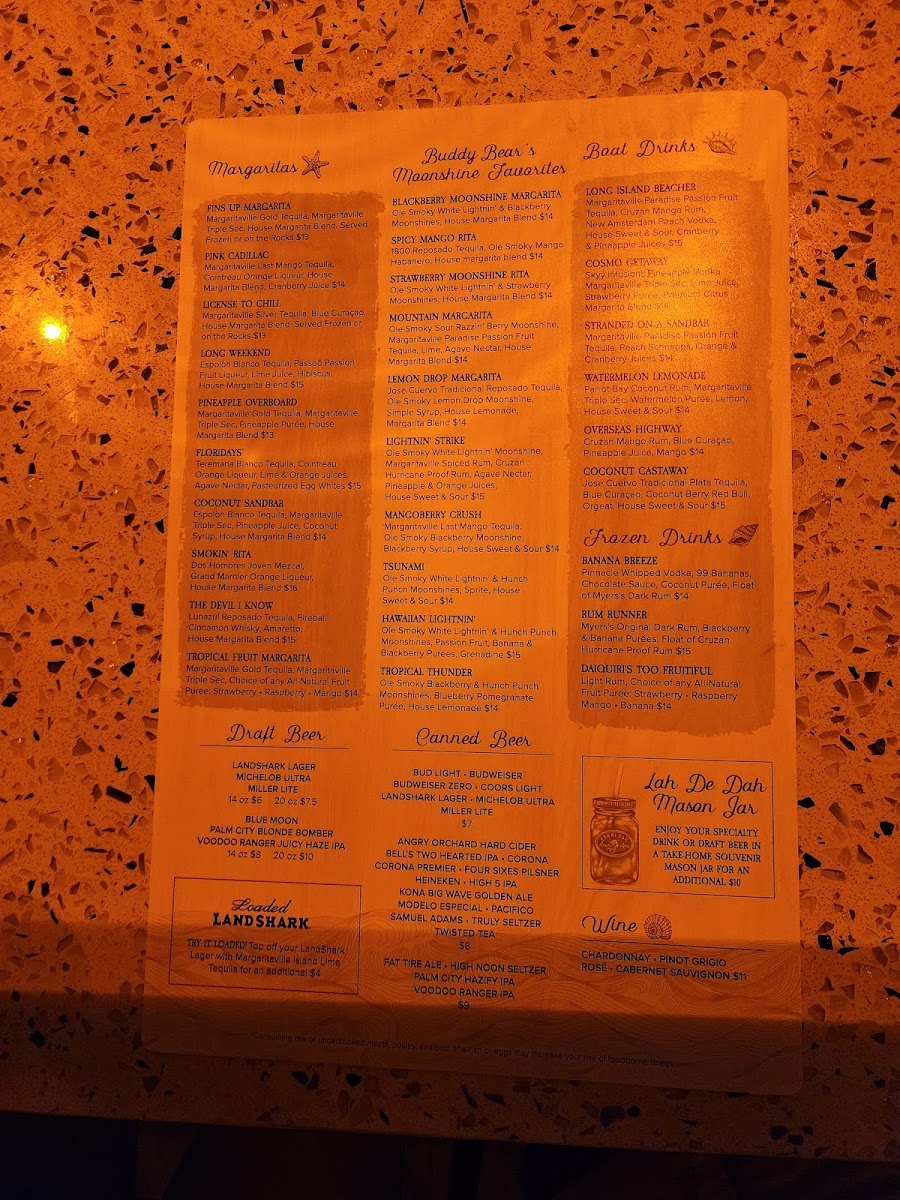 Margaritas
FINS UP MARGARITA
Margaritaville Gold Tequila, Margaritaville
Triple Sec, House Margarita Blend. Served
Frozen or on the Rocks $13
PINK CADILLAC
Margaritaville Last Mango Tequila,
Cointreau Orange Liqueur, House
Margarita Blend, Cranberry Juice $14
LICENSE TO CHILL
Margaritaville Silver Tequila, Blue Curaçao,
House Margarita Blend. Served Frozen or
on the Rocks $13
LONG WEEKEND
Espolòn Blanco Tequila, Passoã Passion
Fruit Liqueur, Lime Juice, Hibiscus,
House Margarita Blend $15
PINEAPPLE OVERBOARD
Margaritaville Gold Tequila, Margaritaville
Triple Sec, Pineapple Purée, House
Margarita Blend $13
FLORIDAYS
Teremana Blanco Tequila, Cointreau
Orange Liqueur, Lime & Orange Juices,
Agave Nectar, Pasteurized Egg Whites $15
COCONUT SANDBAR
Espolòn Blanco Tequila, Margaritaville
Triple Sec, Pineapple Juice, Coconut
Syrup, House Margarita Blend $14
SMOKIN' RITA
Dos Hombres Joven Mezcal,
Grand Marnier Orange Liqueur,
House Margarita Blend $16
THE DEVIL I KNOW
Lunazul Reposado Tequila, Fireball
Cinnamon Whisky, Amaretto,
House Margarita Blend $15
TROPICAL FRUIT MARGARITA
Margaritaville Gold Tequila, Margaritaville
Triple Sec, Choice of any All-Natural Fruit
Purée: Strawberry • Raspberry • Mango $14
Draft Beer
LANDSHARK LAGER
MICHELOB ULTRA
MILLER LITE
14 oz $6 20 oz $7.5
BLUE MOON
PALM CITY BLONDE BOMBER
VOODOO RANGER JUICY HAZE IPA
14 oz $8 20 oz $10
Loaded
LANDSHARK
TRY IT LOADED! Top off your LandShark
Lager with Margaritaville Island Lime
Tequila for an additional $4
Buddy Bear's
Moonshine Favorites
BLACKBERRY MOONSHINE MARGARITA
Ole Smoky White Lightnin' & Blackberry
Moonshines, House Margarita Blend $14
SPICY MANGO RITA
1800 Reposado Tequila, Ole Smoky Mango
Habanero, House margarita blend $14
STRAWBERRY MOONSHINE RITA
Ole Smoky White Lightnin' & Strawberry
Moonshines, House Margarita Blend $14
MOUNTAIN MARGARITA
Ole Smoky Sour Razzin' Berry Moonshine,
Margaritaville Paradise Passion Fruit
Tequila, Lime, Agave Nectar, House
Margarita Blend $14
LEMON DROP MARGARITA
Jose Cuervo Tradicional Reposado Tequila,
Ole Smoky Lemon Drop Moonshine,
Simple Syrup, House Lemonade,
Margarita Blend $14
LIGHTNIN' STRIKE
Ole Smoky White Lightnin' Moonshine,
Margaritaville Spiced Rum, Cruzan
Hurricane Proof Rum, Agave Nectar,
Pineapple & Orange Juices,
House Sweet & Sour $15
MANGOBERRY CRUSH
Margaritaville Last Mango Tequila,
Ole Smoky Blackberry Moonshine,
Blackberry Syrup, House Sweet & Sour $14
TSUNAMI
Ole Smoky White Lightnin' & Hunch
Punch Moonshines, Sprite, House
Sweet & Sour $14
HAWAIIAN LIGHTNIN'
Ole Smoky White Lightnin' & Hunch Punch
Moonshines, Passion Fruit, Banana &
Blackberry Purées, Grenadine $15
TROPICAL THUNDER
Ole Smoky Blackberry & Hunch Punch
Moonshines, Blueberry Pomegranate
Purée, House Lemonade $14
Canned Beer
BUD LIGHT • BUDWEISER
BUDWEISER ZERO • COORS LIGHT
LANDSHARK LAGER • MICHELOB ULTRA
MILLER LITE
$7
ANGRY ORCHARD HARD CIDER
BELL'S TWO HEARTED IPA • CORONA
CORONA PREMIER • FOUR SIXES PILSNER
HEINEKEN • HIGH 5 IPA
KONA BIG WAVE GOLDEN ALE
MODELO ESPECIAL • PACIFICO
SAMUEL ADAMS • TRULY SELTZER
TWISTED TEA
$8
FAT TIRE ALE • HIGH NOON SELTZER
PALM CITY HAZIFY IPA
VOODOO RANGER IPA
$9
Boat Drinks
LONG ISLAND BEACHER
Margaritaville Paradise Passion Fruit
Tequila, Cruzan Mango Rum,
New Amsterdam Peach Vodka,
House Sweet & Sour, Cranberry
& Pineapple Juices $15
COSMO GETAWAY
Skyy Infusions Pineapple Vodka,
Margaritaville Triple Sec, Lime Juice,
Strawberry Purée, Premium Citrus
Margarita Blend
STRANDED ON A SANDBAR
Margaritaville Paradise Passion Fruit
Tequila, Peach Schnapps, Orange &
Cranberry Juices $14
WATERMELON LEMONADE
Parrot Bay Coconut Rum, Margaritaville
Triple Sec, Watermelon Purée, Lemon,
House Sweet & Sour $14
OVERSEAS HIGHWAY
Cruzan Mango Rum, Blue Curaçao,
Pineapple Juice, Mango $14
COCONUT CASTAWAY
Jose Cuervo Tradicional Plata Tequila,
Blue Curaçao, Coconut Berry Red Bull,
Orgeat, House Sweet & Sour $15
Frozen Drinks
BANANA BREEZE
Pinnacle Whipped Vodka, 99 Bananas,
Chocolate Sauce, Coconut Purée, Float
of Myers's Dark Rum $14
RUM RUNNER
Myers's Original Dark Rum, Blackberry
& Banana Purées, Float of Cruzan
Hurricane Proof Rum $15
DAIQUIRI'S TOO FRUITIFUL
Light Rum, Choice of any All-Natural
Fruit Purée: Strawberry • Raspberry
Mango • Banana $14
Lah De Dah
Mason Jar
ENJOY YOUR SPECIALTY
DRINK OR DRAFT BEER IN
A TAKE HOME SOUVENIR
MASON JAR FOR AN
ADDITIONAL $10
Wine
CHARDONNAY • PINOT GRIGIO
ROSÉ • CABERNET SAUVIGNON $11
*Consuming raw or undercooked meats, poultry, seafood, shellfish or eggs may increase your risk of foodborne illness.